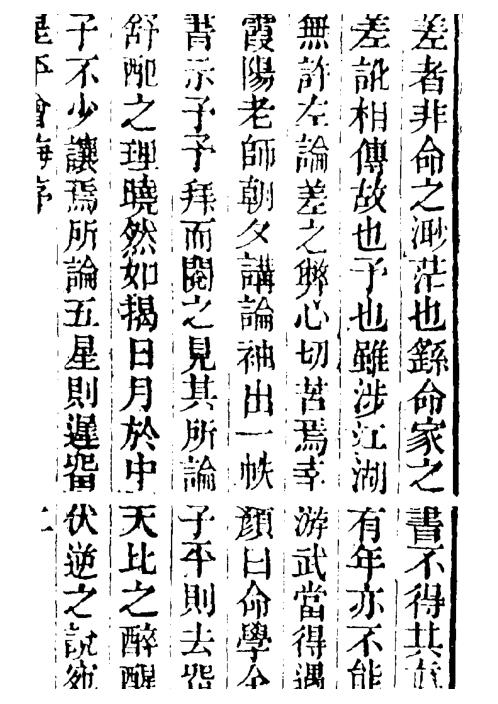 差者非命之渺茫也繇命家之書不得其真
差訛相傳故也予也雖涉江湖有年亦不能
無許左論差之弊心切苦焉幸游武當得遇
霞陽老師朝夕講論袖出一帙顏曰命學全
書示予予拜而閱之見其所論子平則去留
舒配之理曉然如揭日月於中天比之醉醒
子不少讓焉所論五星則遲留伏逆之說宛
星平會海序